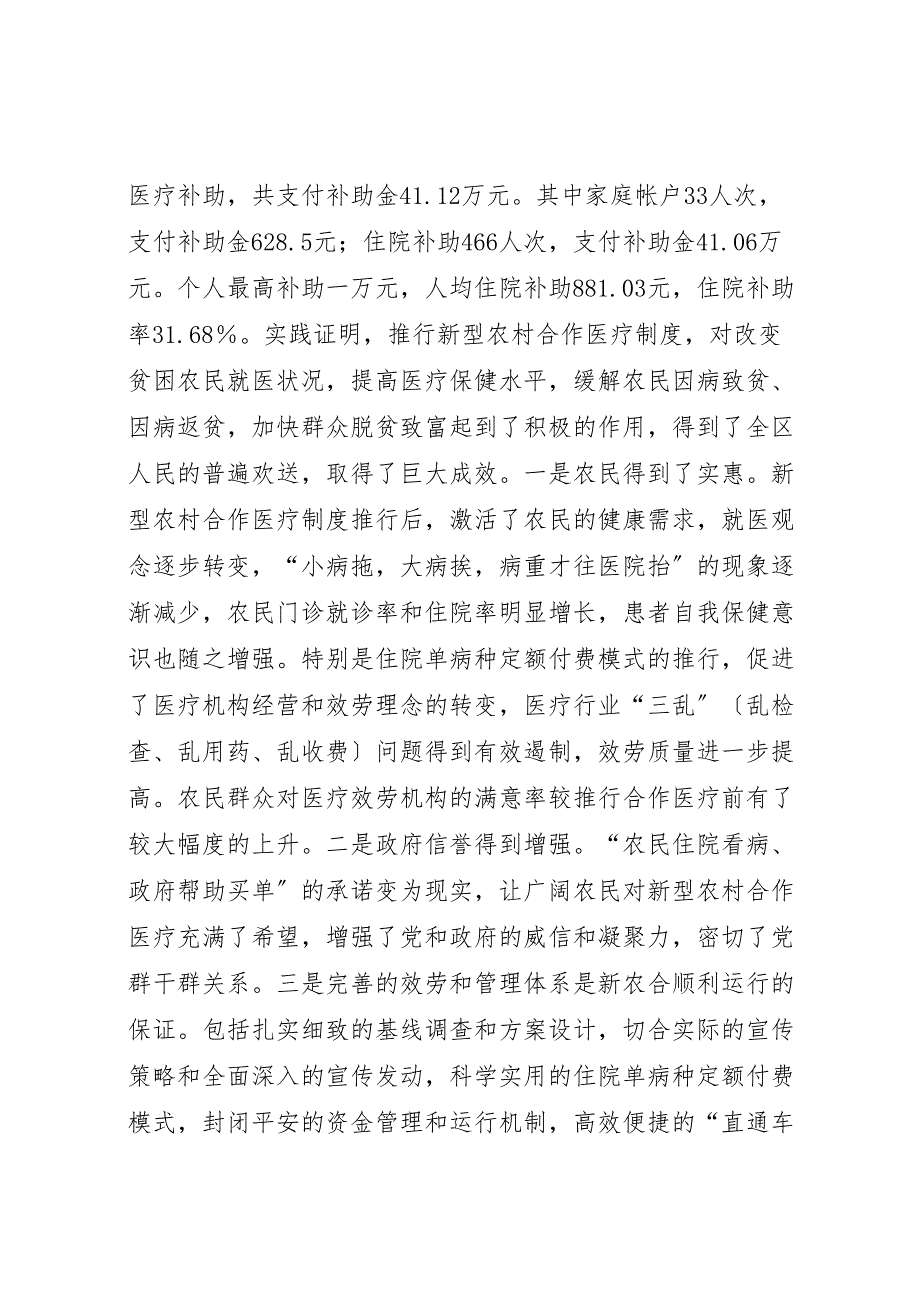 医疗补助，共支付补助金41.12万元。其中家庭帐户33人次，
支付补助金628.5元；住院补助466人次，支付补助金41.06万
元。个人最高补助一万元，人均住院补助881.03元，住院补助
率31.68%。实践证明，推行新型农村合作医疗制度，对改变
贫困农民就医状况，提高医疗保健水平，缓解农民因病致贫、
因病返贫，加快群众脱贫致富起到了积极的作用，得到了全区
人民的普遍欢送，取得了巨大成效。一是农民得到了实惠。新
型农村合作医疗制度推行后，激活了农民的健康需求，就医观
念逐步转变，“小病拖，大病挨，病重才往医院抬〞的现象逐
渐减少，农民门诊就诊率和住院率明显增长，患者自我保健意
识也随之增强。特别是住院单病种定额付费模式的推行，促进
了医疗机构经营和效劳理念的转变，医疗行业“三乱〞〔乱检
查、乱用药、乱收费〕问题得到有效遏制，效劳质量进一步提
高。农民群众对医疗效劳机构的满意率较推行合作医疗前有了
较大幅度的上升。二是政府信誉得到增强。“农民住院看病、
政府帮助买单〞的承诺变为现实，让广阔农民对新型农村合作
医疗充满了希望，增强了党和政府的威信和凝聚力，密切了党
群干群关系。三是完善的效劳和管理体系是新农合顺利运行的
保证。包括扎实细致的基线调查和方案设计，切合实际的宣传
策略和全面深入的宣传发动，科学实用的住院单病种定额付费
模式，封闭平安的资金管理和运行机制，高效便捷的“直通车